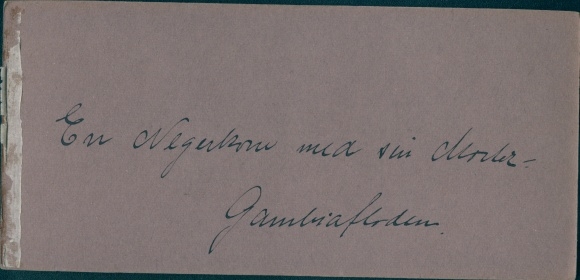 En Negerkone med sin Morter-
Gambiafloden.